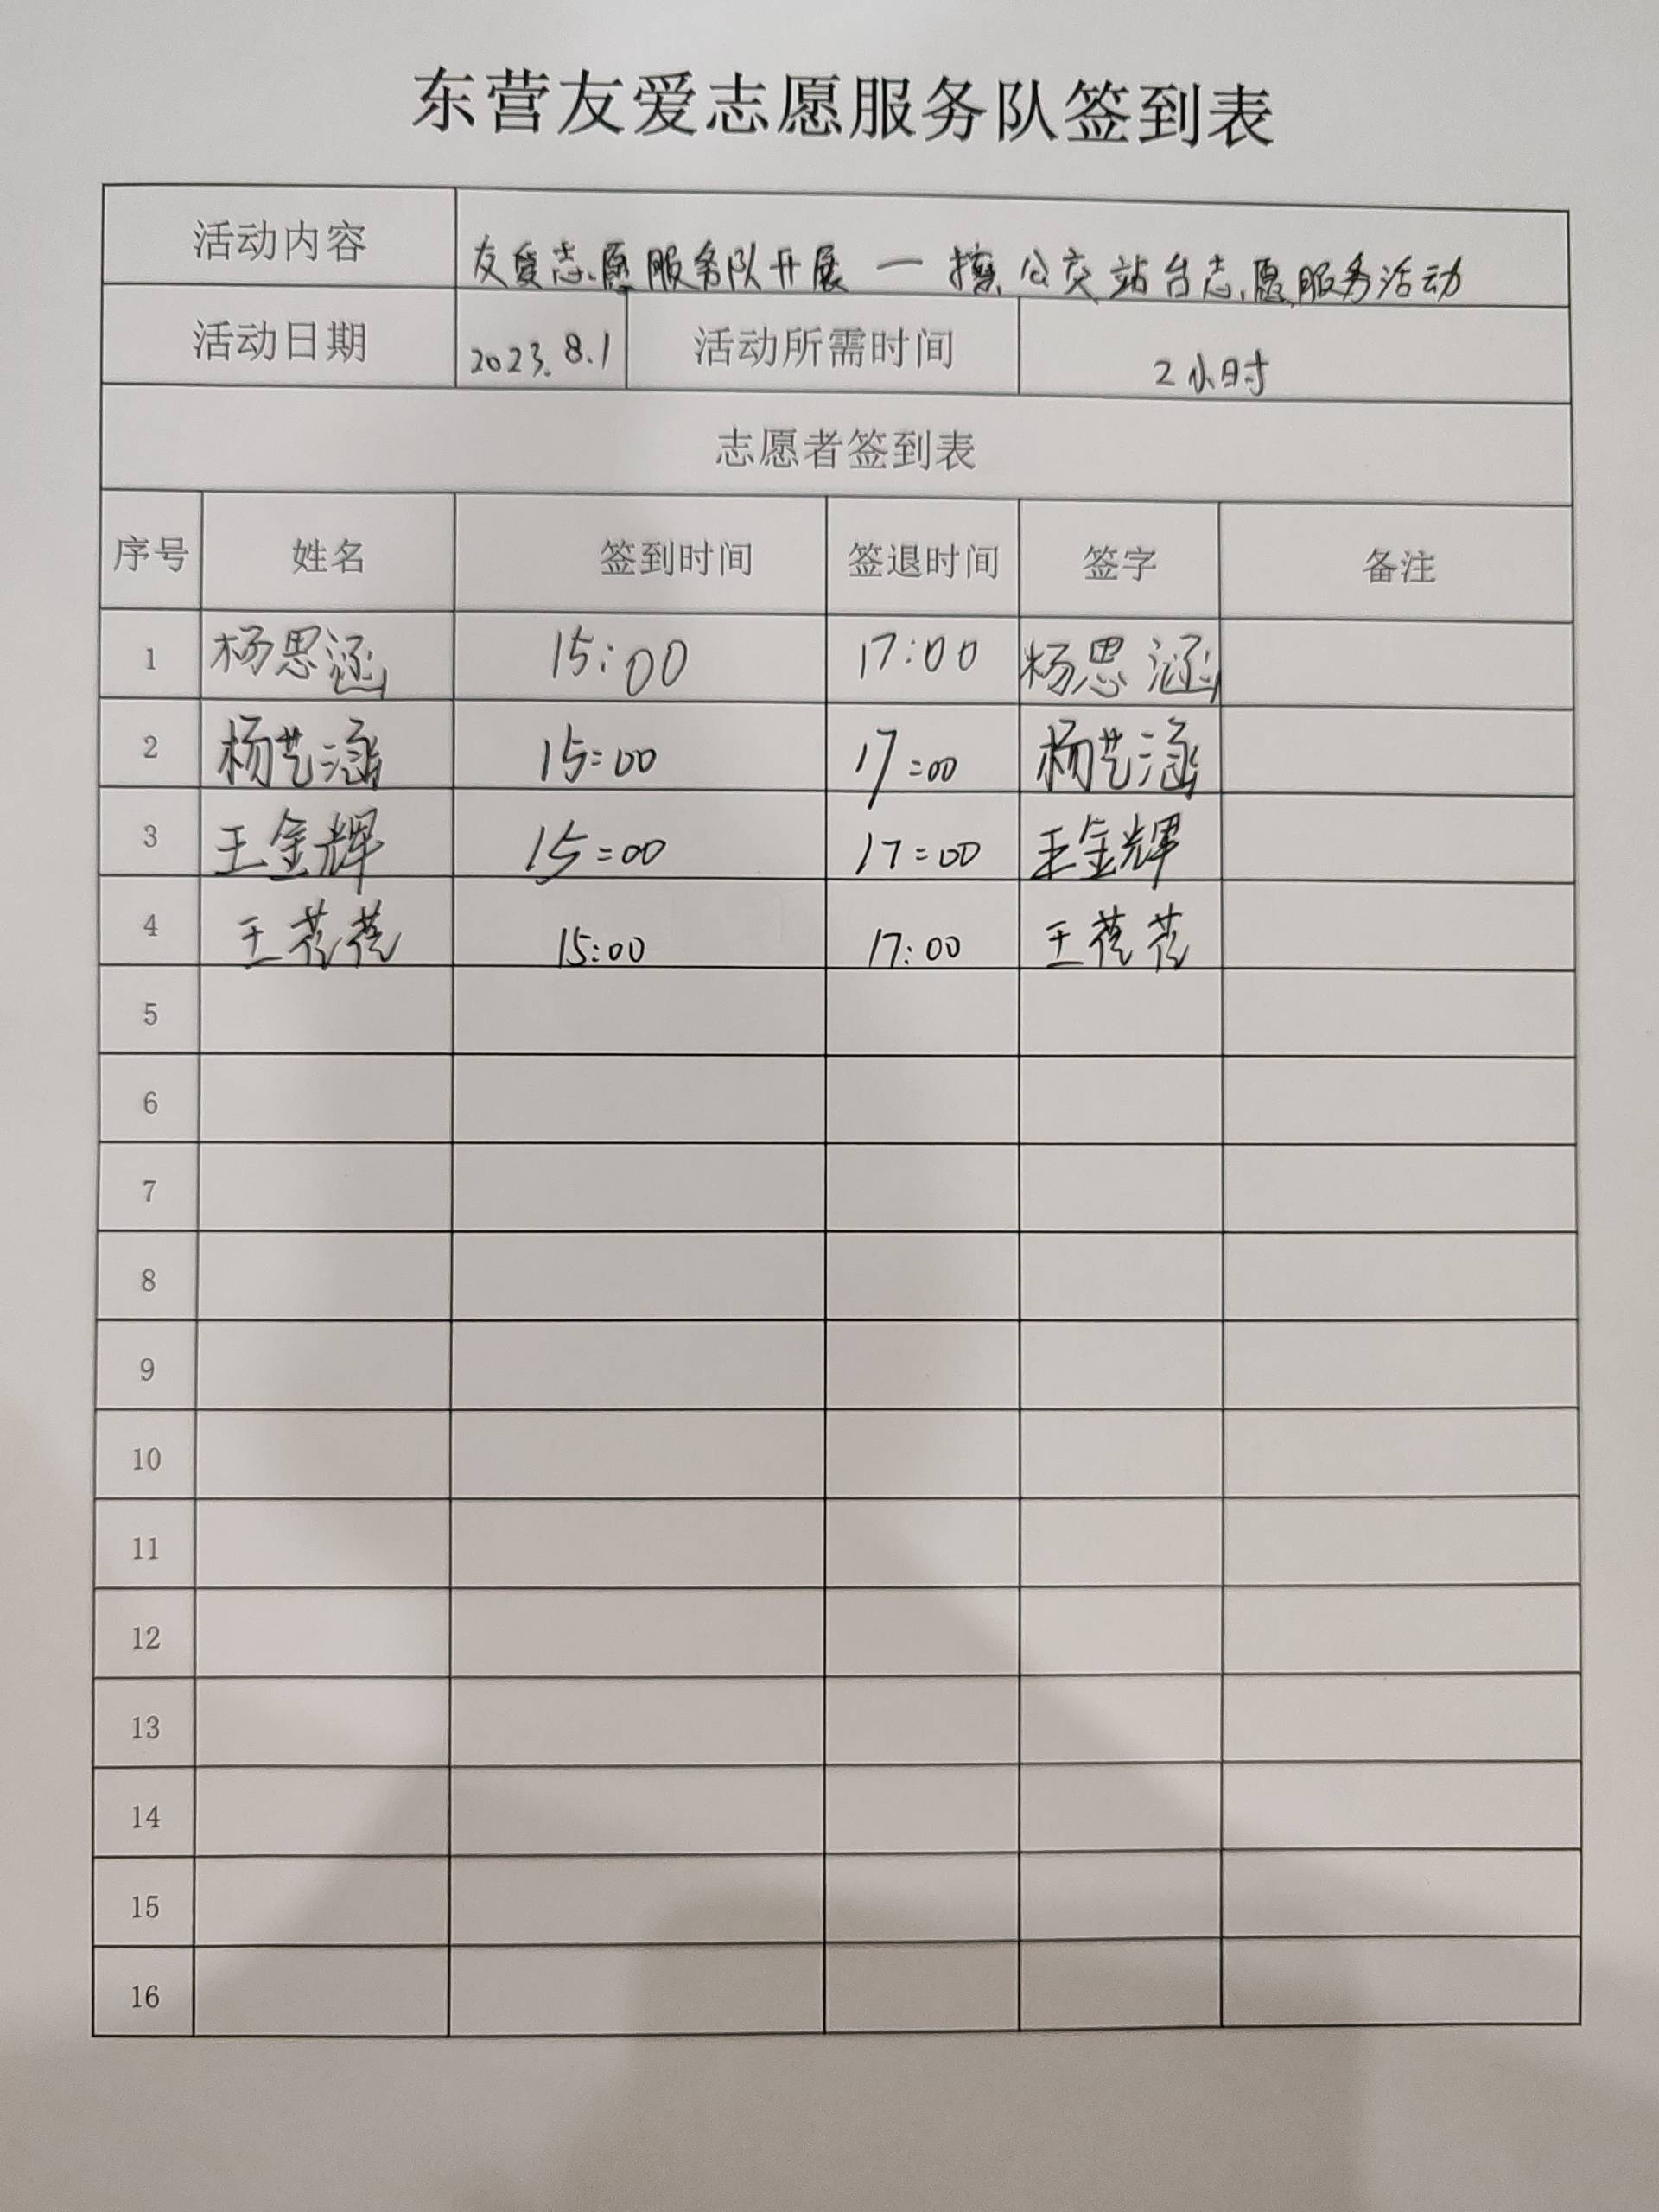 东营友爱志愿服务队签到表
活动内容 友爱志愿服务队开展一擦公交站台志愿服务活动
活动日期 2023.8.1 活动所需时间 2小时
志愿者签到表
序号 姓名 签到时间 签退时间 签字 备注
1 杨思涵 15:00 17:00 杨思涵
2 杨艺涵 15:00 17:00 杨艺涵
3 王金辉 15:00 17:00 王金辉
4 王 15:00 17:00 王
5
6
7
8
9
10
11
12
13
14
15
16